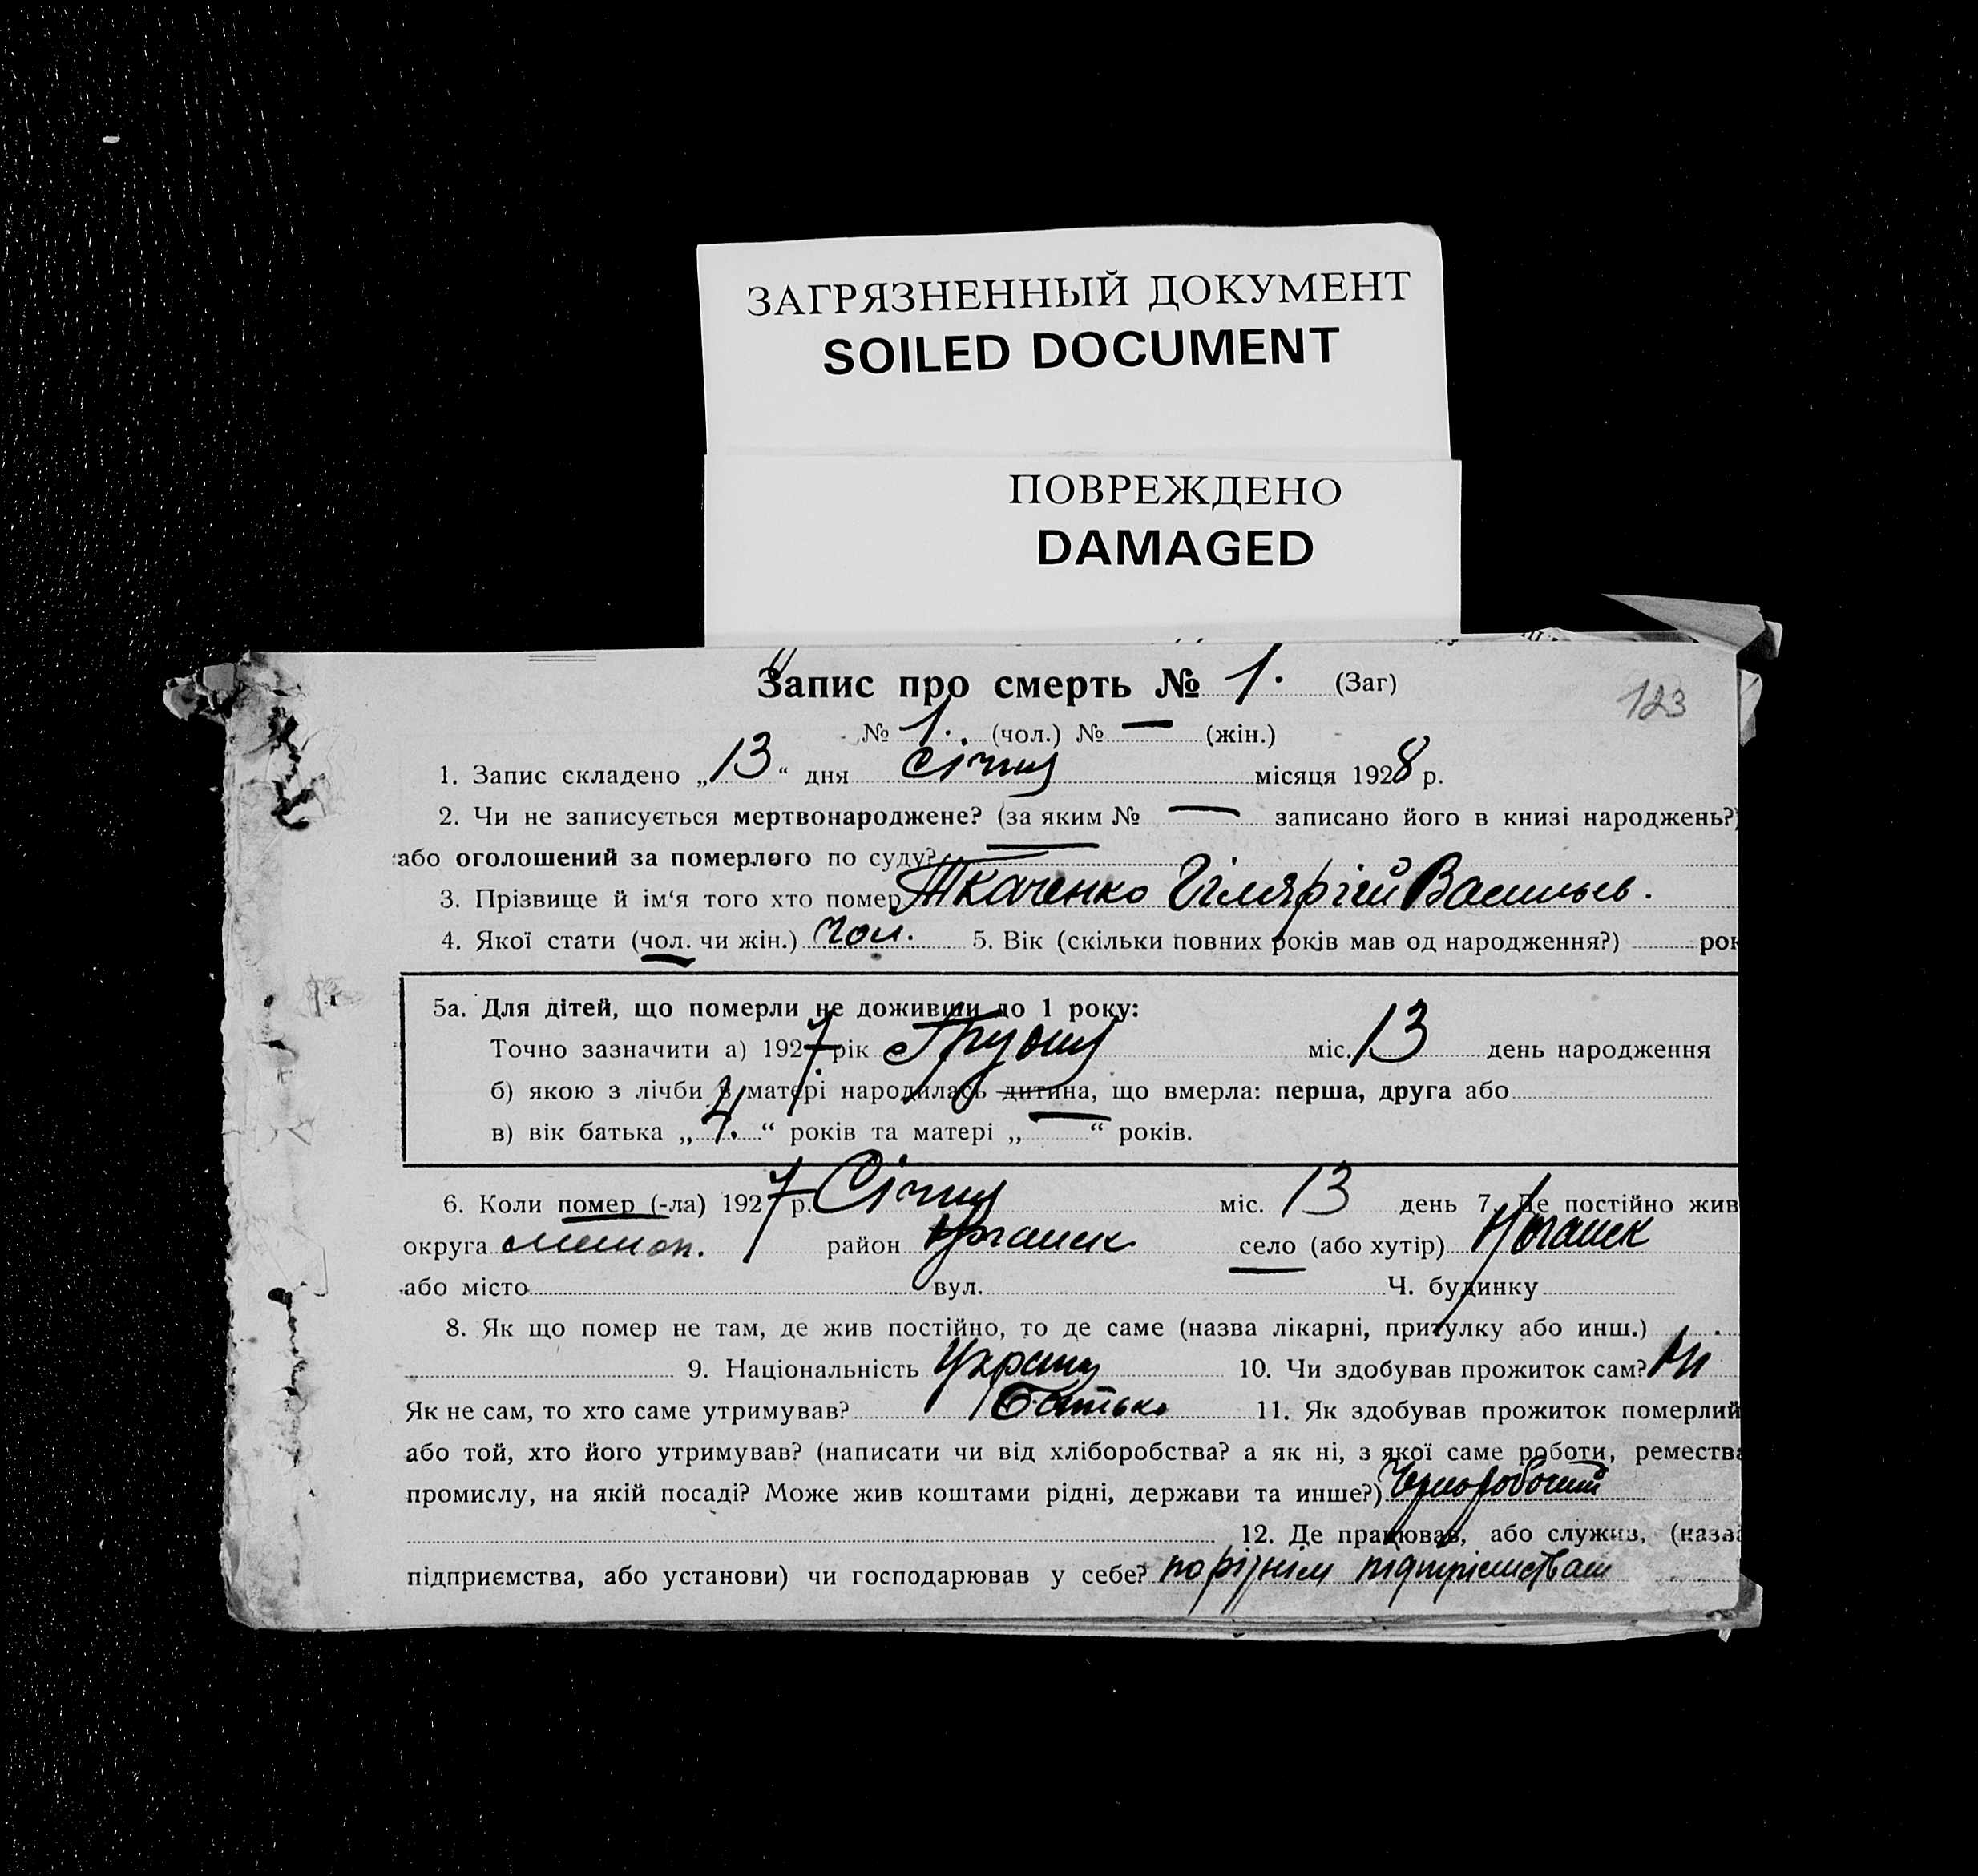 ЗАГРЯЗНЕННЫЙ ДОКУМЕНТ
SOILED DOCUMENT
ПОВРЕЖДЕНО
DAMAGED
Запис про смерть № 1. (Заг)
123
№ 1. (чол.) № — (жін.)
1. Запис складено „13“ дня січня місяця 1928 р.
2. Чи не записується мертвонароджене? (за яким № — записано його в книзі народжень?)
або оголошений за померлого по суду? —
3. Прізвище й ім‘я того хто помер Ткаченко Гілярій Васильев.
4. Якої стати (чол. чи жін.) чол. 5. Вік (скільки повних років мав од народження?) рок
5а. Для дітей, що померли не доживши до 1 року:
Точно зазначити а) 1927 рік Грудня міс. 13 день народження
б) якою з лічби в матері народилась дитина, що вмерла: перша, друга або
в) вік батька „ “ років та матері „—“ років.
6. Коли помер (-ла) 1927 р. Січня міс. 13 день 7. Де постійно жив
округа мелітоп. район Ногайск село (або хутір) Ногайск
або місто вул. Ч. будинку
8. Як що помер не там, де жив постійно, то де саме (назва лікарні, притулку або инш.)
9. Національність Україн 10. Чи здобував прожиток сам? Ні
Як не сам, то хто саме утримував? Батько 11. Як здобував прожиток померлий
або той, хто його утримував? (написати чи від хліборобства? а як ні, з якої саме роботи, ремества
промислу, на якій посаді? Може жив коштами рідні, держави та инше?) Чорноробочий
12. Де працював, або служив, (назва
підприємства, або установи) чи господарював у себе? по різним підпріємствам